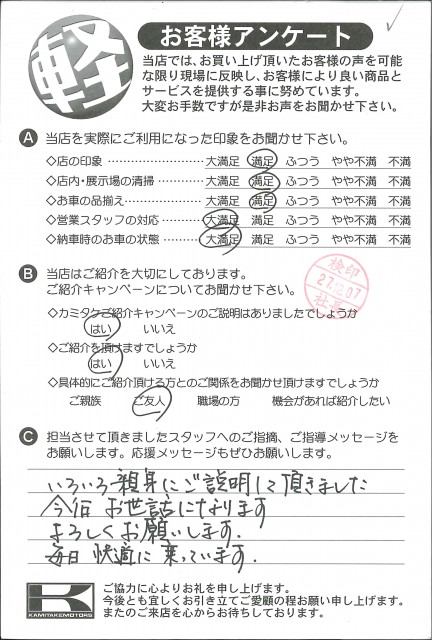 軽
お客様アンケート
当店では、お買い上げ頂いたお客様の声を可能
な限り現場に反映し、お客様により良い商品と
サービスを提供する事に努めています。
大変お手数ですが是非お声をお聞かせ下さい。
A 当店を実際にご利用になった印象をお聞かせ下さい。
◇店の印象 ………………… 大満足 満足 ふつう やや不満 不満
◇店内・展示場の清掃 ……… 大満足 満足 ふつう やや不満 不満
◇お車の品揃え ……………… 大満足 満足 ふつう やや不満 不満
◇営業スタッフの対応 ……… 大満足 満足 ふつう やや不満 不満
◇納車時のお車の状態 ……… 大満足 満足 ふつう やや不満 不満
B 当店はご紹介を大切にしております。
ご紹介キャンペーンについてお聞かせ下さい。
検印
27.12.07
社長
◇カミタケご紹介キャンペーンのご説明はありましたでしょうか
はい いいえ
◇ご紹介を頂けますでしょうか
はい いいえ
◇具体的にご紹介頂ける方とのご関係をお聞かせ頂けますでしょうか
ご親族 ご友人 職場の方 機会があれば紹介したい
C 担当させて頂きましたスタッフへのご指摘、ご指導メッセージを
お願いします。応援メッセージもぜひお願いします。
いろいろ親身にご説明して頂きました
今后 お世話になります
よろしくお願いします.
毎日 快適に 乗っています.
K
KAMITAKEMOTORS
ご協力に心よりお礼を申し上げます。
今後とも宜しくお引き立てご愛顧の程お願い申し上げます。
またのご来店を心からお待ちしております。